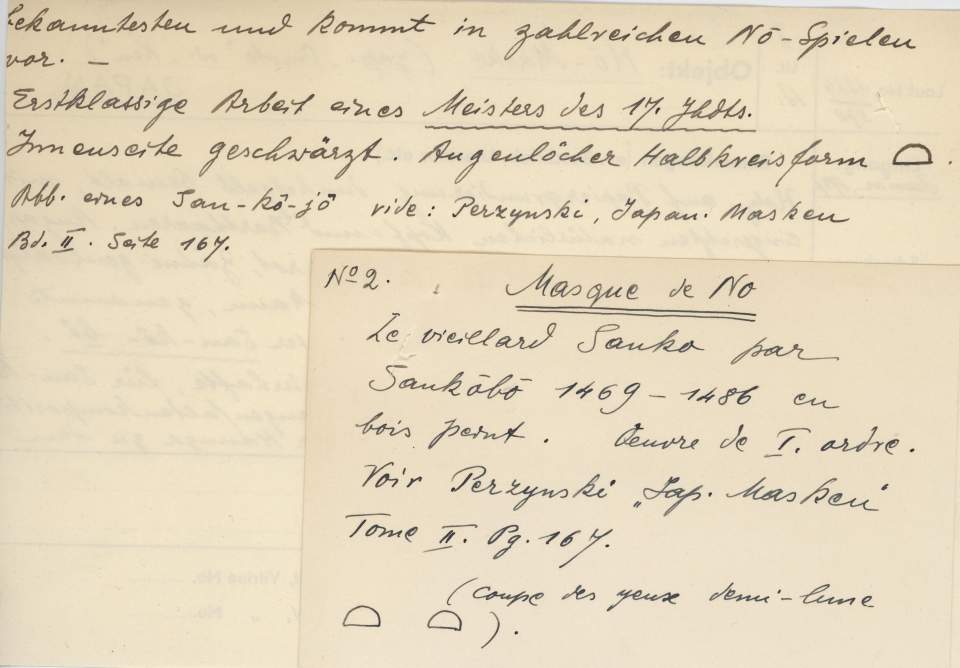 bekanntesten und kommt in zahlreichen Nō-Spielen
vor. —
Erstklassige Arbeit eines Meisters des 17. Jhdts.
Innenseite geschwärzt. Augenlöcher Halbkreisform .
Abb. eines San-kō-jō vide: Perzynski, Japan. Masken
Bd. II. Seite 167.
No 2. Masque de No
Le vieillard Sanko par
Sankōbō 1469 - 1486 en
bois peint. Oeuvre de I. ordre.
Voir Perzynski „Jap. Masken"
Tome II. Pg. 167.
(coupe des yeux demi-lune
).